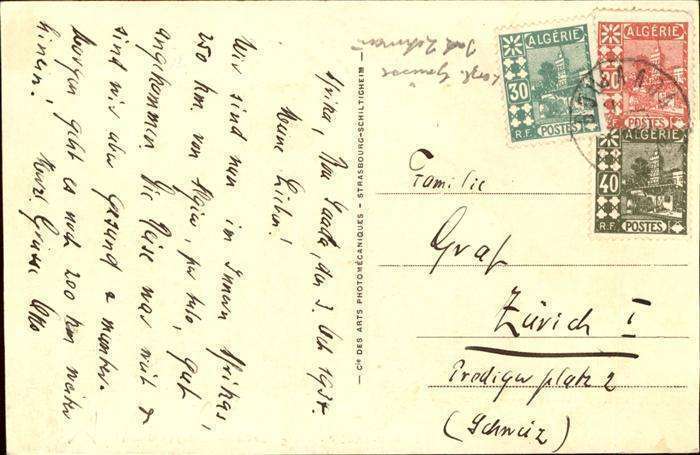 Afrika, Bou Saada, den 3. Okt 1937.
Meine Lieben!
Wir sind nun im Innern Afrikas,
250 km von Algier, per Auto, gut
angekommen. Die Reise war weit &
sind wir aber gesund & munter.
Morgen geht es noch 200 km weiter
hinein! Herzl. Grüsse Otto
Cie DES ARTS PHOTOMÉCANIQUES - STRASBOURG-SCHILTIGHEIM
ALGÉRIE
30
R.F. POSTES
ALGÉRIE
R.F. POSTES
ALGÉRIE
40
R.F. POSTES
Familie
Graf
Zürich I
Predigerplatz 2
(Schweiz)